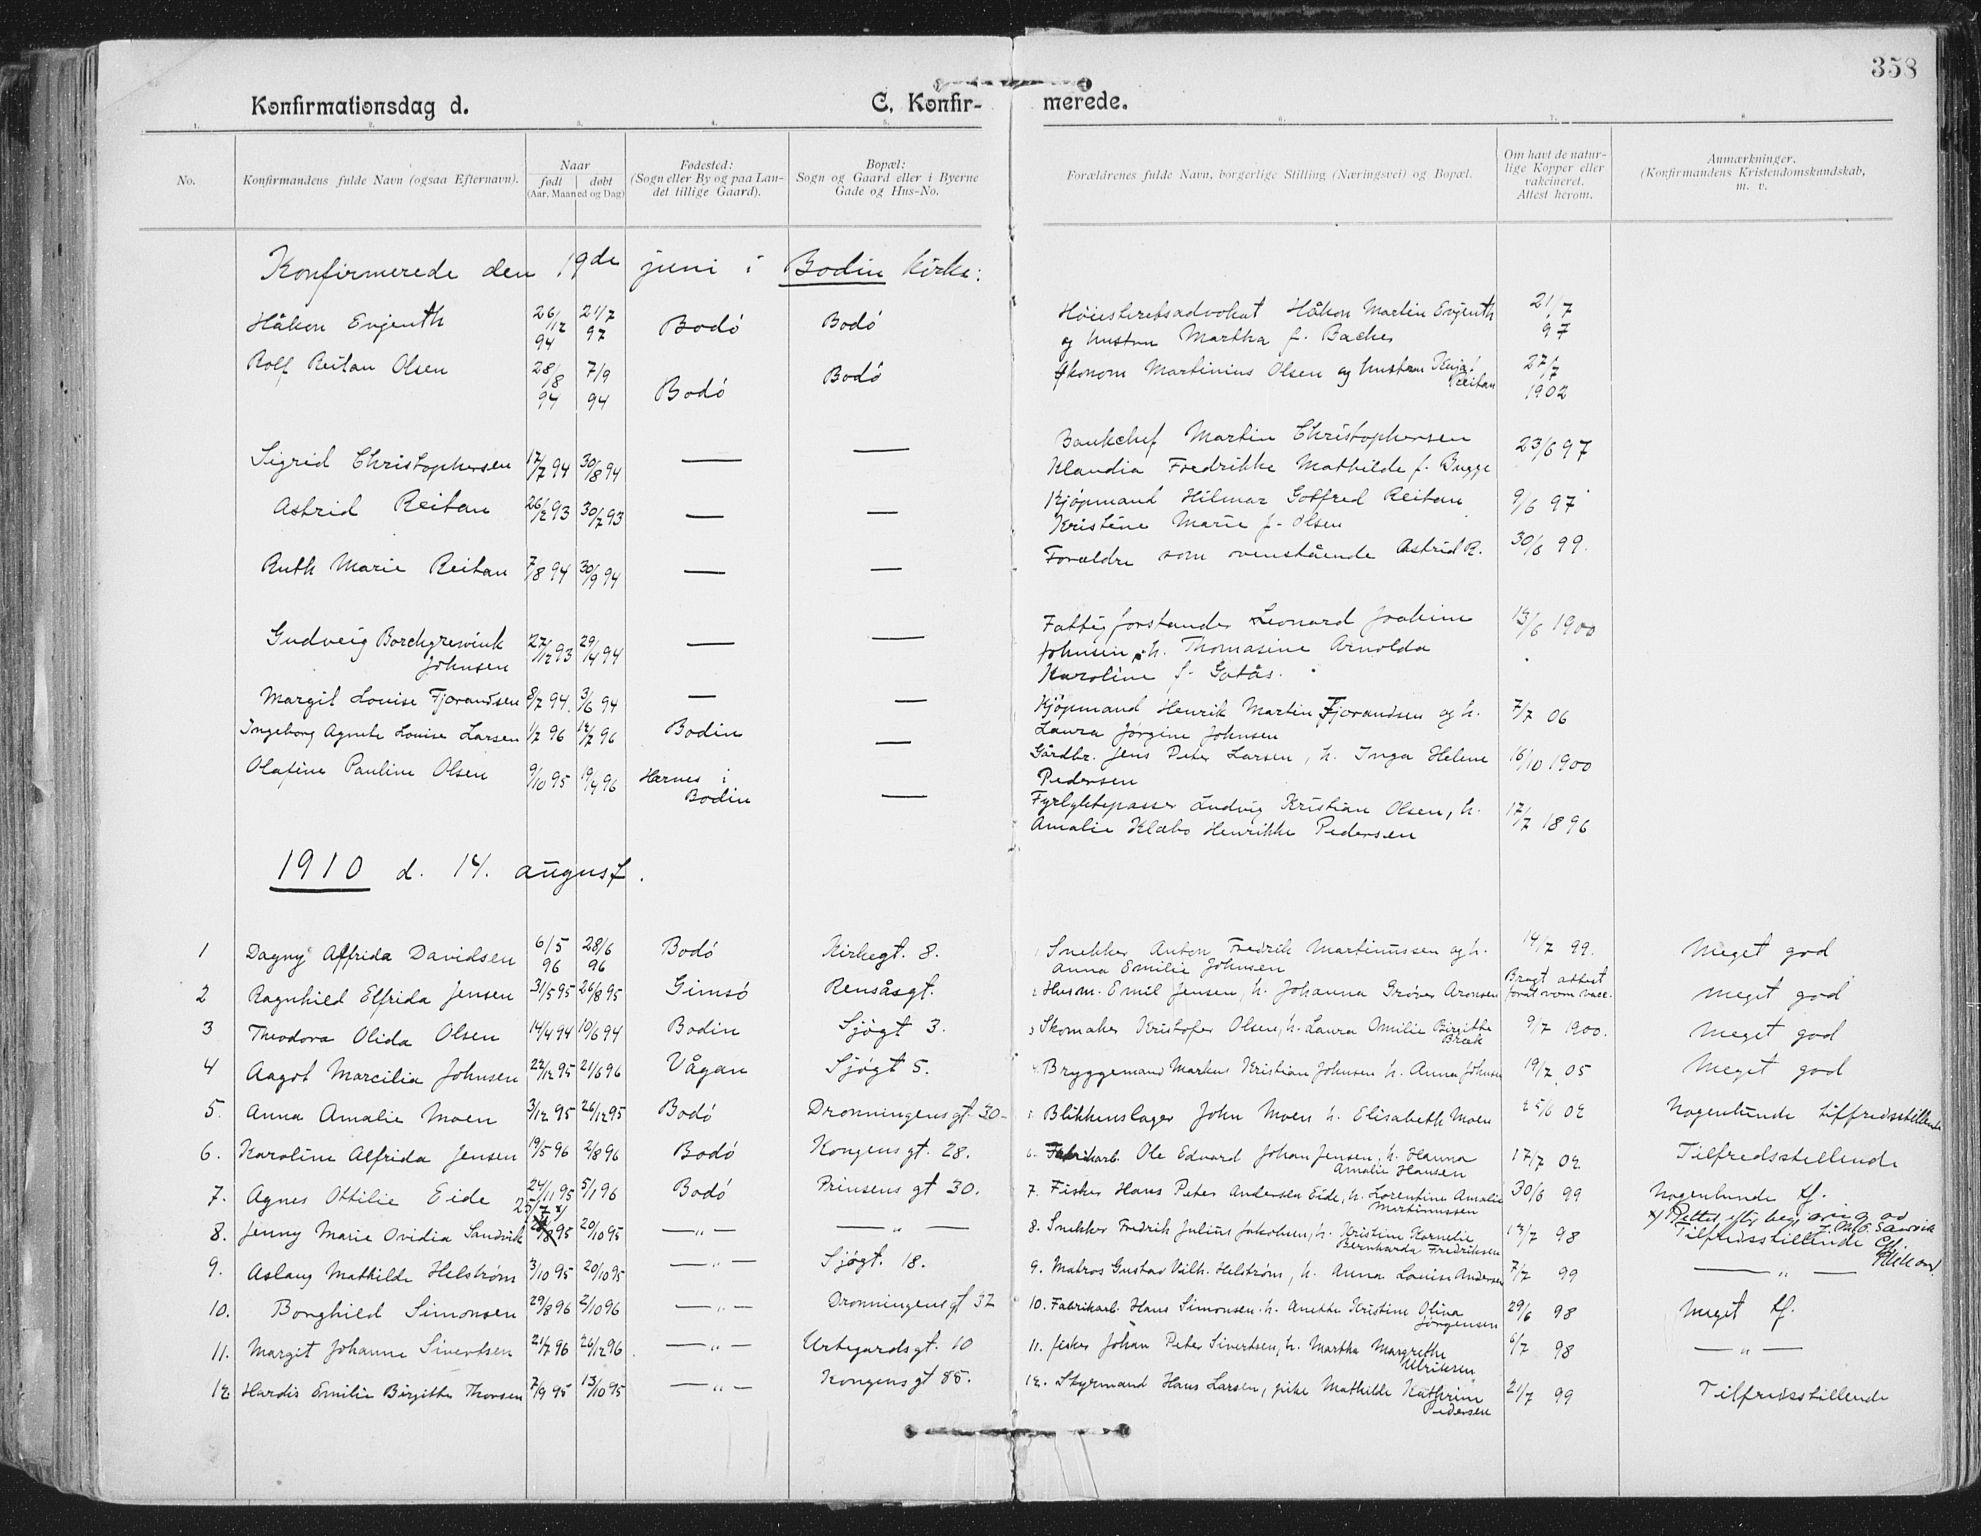 358
Konfirmationsdag d. C. Konfir- merede.
1. 2. 3. 4. 5. 6. 7. 8.
No.
Konfirmandens fulde Navn (ogsaa Efternavn).
Naar
født døbt
(Aar, Maaned og Dag)
Fødested:
(Sogn eller By og paa Lan-
det tillige Gaard).
Bopæl:
Sogn og Gaard eller i Byerne
Gade og Hus-No.
Forældrenes fulde Navn, borgerlige Stilling (Næringsvei) og Bopæl.
Om havt de natur-
lige Kopper eller
vakcineret.
Attest herom.
Anmærkninger.
(Konfirmandens Kristendomskundskab,
m. v.
Konfirmerede den 19de juni i Bodin kirke:
Håkon Evjenth 26/12 94 21/7 97 Bodö Bodö Höiesteretsadvokat Håkon Martin Evjenth 21/7 97
og hustru Martha f. Backer
Rolf Reitan Olsen 28/8 94 7/9 94 Bodö Bodö Ökonom Martinius Olsen og hustru Kaja Reitan 27/7 1902
Sigrid Christophersen 17/7 94 30/8 94 — — Bankchef Martin Christophersen 23/6 97
Klaudia Fredrikke Mathilde f. Bugge
Astrid Reitan 26/2 93 30/7 93 — — Kjöpmand Hilmar Gotfred Reitan 9/6 97
Kristine Marie f. Olsen
Ruth Marie Reitan 7/8 94 30/9 94 — — Forældre som ovenstående Astrid R. 30/6 99.
Gudveig Borchgrevink 27/12 93 29/4 94 — — Fattigforstander Leonard Joakim 13/6 1900
Johnsen Johnsen, h. Thomasine Arnolda
Karoline f. Gotås.
Margit Louise Fjorandsen 8/2 94. 3/6 94 — — Kjöpmand Henrik Martin Fjorandsen og h. 7/7 06
Laura Jörgine Johnsen
Ingeborg Agnete Louise Larsen 1/7 96 12/7 96 Bodin — Gårdbr. Jens Peter Larsen, h. Inga Helene 16/10 1900
Pedersen
Olafine Pauline Olsen 9/10 95 19/4 96 Hernes i — Fyrlyktepasser Ludvig Kristian Olsen, h. 17/7 1896
Bodin Amalie Klæbo Henrikke Pedersen
1910 d. 14. august.
1 Dagny Alfrida Davidsen 6/5 96 28/6 96 Bodö Kirkegt. 8. 1 Snekker Anton Fredrik Martinussen og h. 14/7 99. Meget god
Anna Emilie Johnsen
2 Ragnhild Elfrida Jensen 31/5 95 26/8 95 Gimsö Rensåsgt. 2 Husm. Emil Jensen, h. Johanna Gröver Aronsen Bragt attest meget god
3 Theodora Olida Olsen 14/4 94 10/6 94 Bodin Sjögt 3. 3 Skomaker Kristofer Olsen, h. Laura Amilie Birgitte Bræk 9/7 1900. Meget god
4 Aagot Marcilia Johnsen 22/12 95 21/6 96 Vågan Sjögt 5. 4. Bryggemand Markus Kristian Johnsen h. Anna Johnsen 19/7 05 Meget god
5. Anna Amalie Moen 3/12 95 26/12 95 Bodö Dronningens gt. 30. 5. Blikkenslager John Moen h. Elisabeth Moen 25/6 02 Nogenlunde tilfredsstillende
6. Karoline Alfrida Jensen 19/5 96 2/8 96 Bodö Kongens gt. 28. 6. Fabrikarb. Ole Edvard Johan Jensen, h. Hanna 17/7 02 Tilfredsstillende
Amalie Hansen
7. Agnes Ottilie Eide 24/11 95 5/1 96 Bodö Prinsens gt 30. 7. Fisker Hans Peter Andersen Eide, h. Lorentine Amalie 30/6 99 Nogenlunde tf.
Martinussen
23/7 x/ x/ Rettet efter begjæring av
8. Jenny Marie Ovidia Sandvik 95 20/10 95 —„— —„— 8. Snekker Fredrik Julius Jakobsen, h. Kristine Kornelie 12/7 98 Tilfredsstillende
Bernharda Fredriksen
9. Aslaug Mathilde Helström 3/10 95 20/10 95 —„— Sjögt. 18. 9. Matros Gustav Vilh. Helström, h. Anna Louise Andersen 7/7 99 —„—
10. Borghild Simonsen 29/8 96 2/10 96 —„— Dronningens gt 32 10. Fabrikarb. Hans Simonsen h. Anette Kristine Olina 29/6 98 Meget tf.
Jörgensen
11. Margit Johanne Sivertsen 21/7 96 26/12 96. —„— Urtegardsgt. 10 11. fisker Johan Peter Sivertsen, h. Martha Margrethe 6/7 98 —„—
Ulriksen
12 Hardis Emilie Birgitte Thorsen 7/9 95 13/10 95 —„— Kongens gt 85. 12. Styrmand Hans Larsen, pike Mathilde Kathrine 21/7 99 Tilfredsstillende
Pedersen